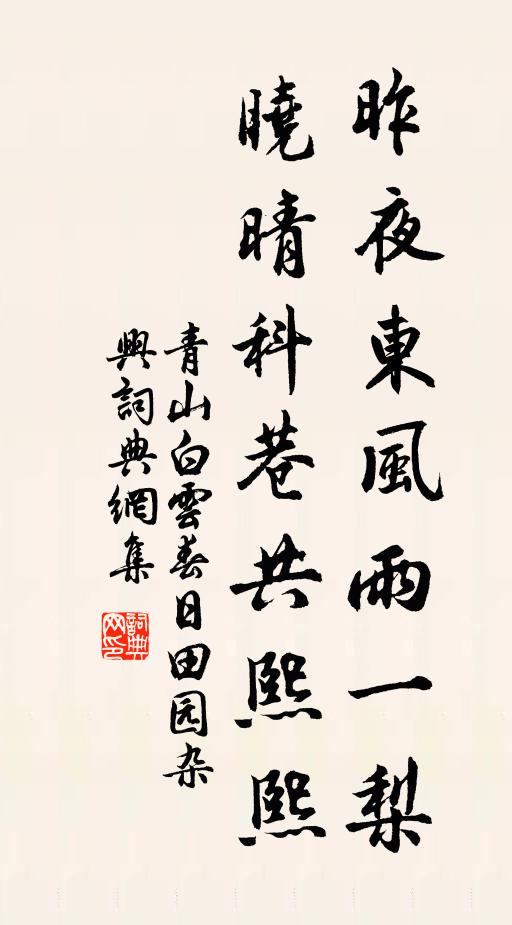 昨夜東風雨一梨
曉晴科巷共熙熙
青山白雲春日田园杂
興詞典網集
詞典網印